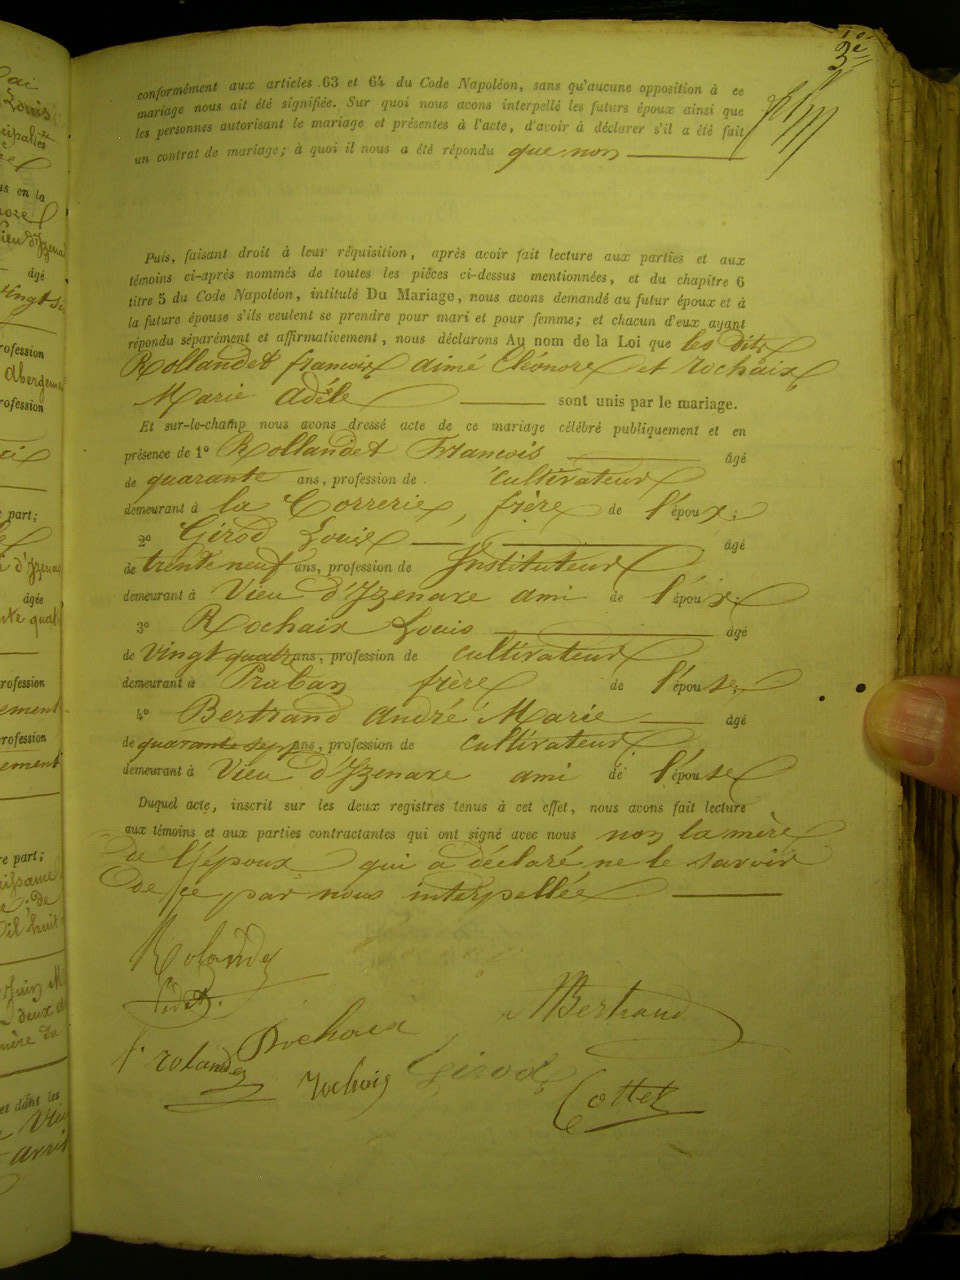 3e
conformément aux articles 63 et 64 du Code Napoléon, sans qu'aucune opposition à ce
mariage nous ait été signifiée. Sur quoi nous avons interpellé les futurs époux ainsi que
les personnes autorisant le mariage et présentes à l'acte, d'avoir à déclarer s'il a été fait
un contrat de mariage; à quoi il nous a été répondu que non
Puis, faisant droit à leur réquisition, après avoir fait lecture aux parties et aux
témoins ci-après nommés de toutes les pièces ci-dessus mentionnées, et du chapitre 6
titre 5 du Code Napoléon, intitulé Du Mariage, nous avons demandé au futur époux et à
la future épouse s'ils veulent se prendre pour mari et pour femme; et chacun d'eux ayant
répondu séparément et affirmativement, nous déclarons Au nom de la Loi que les dits
Rollandet françois aimé Eléonore et Rochaix
Marie Adèle sont unis par le mariage.
Et sur-le-champ nous avons dressé acte de ce mariage célébré publiquement et en
présence de 1° Rollandet François âgé
de quarante ans, profession de cultivateur
demeurant à la Correrie, frère de l'époux;
2° Girod Louis âgé
de trente neuf ans, profession de Instituteur
demeurant à Vieu d'Izenave ami de l'époux;
3° Rochaix Louis âgé
de vingt quatre ans, profession de cultivateur
demeurant à Praban frère de l'épouse;
4° Bertrand André Marie âgé
de quarante sept ans, profession de cultivateur
demeurant à Vieu d'Izenave ami de l'épouse
Duquel acte, inscrit sur les deux registres tenus à cet effet, nous avons fait lecture
aux témoins et aux parties contractantes qui ont signé avec nous non la mère
de l'époux qui a déclaré ne le savoir
de ce par nous interpellée
Rolandez
Bertrand
Rochaix
f. rolandez
Rochaix
Girod
Cottet